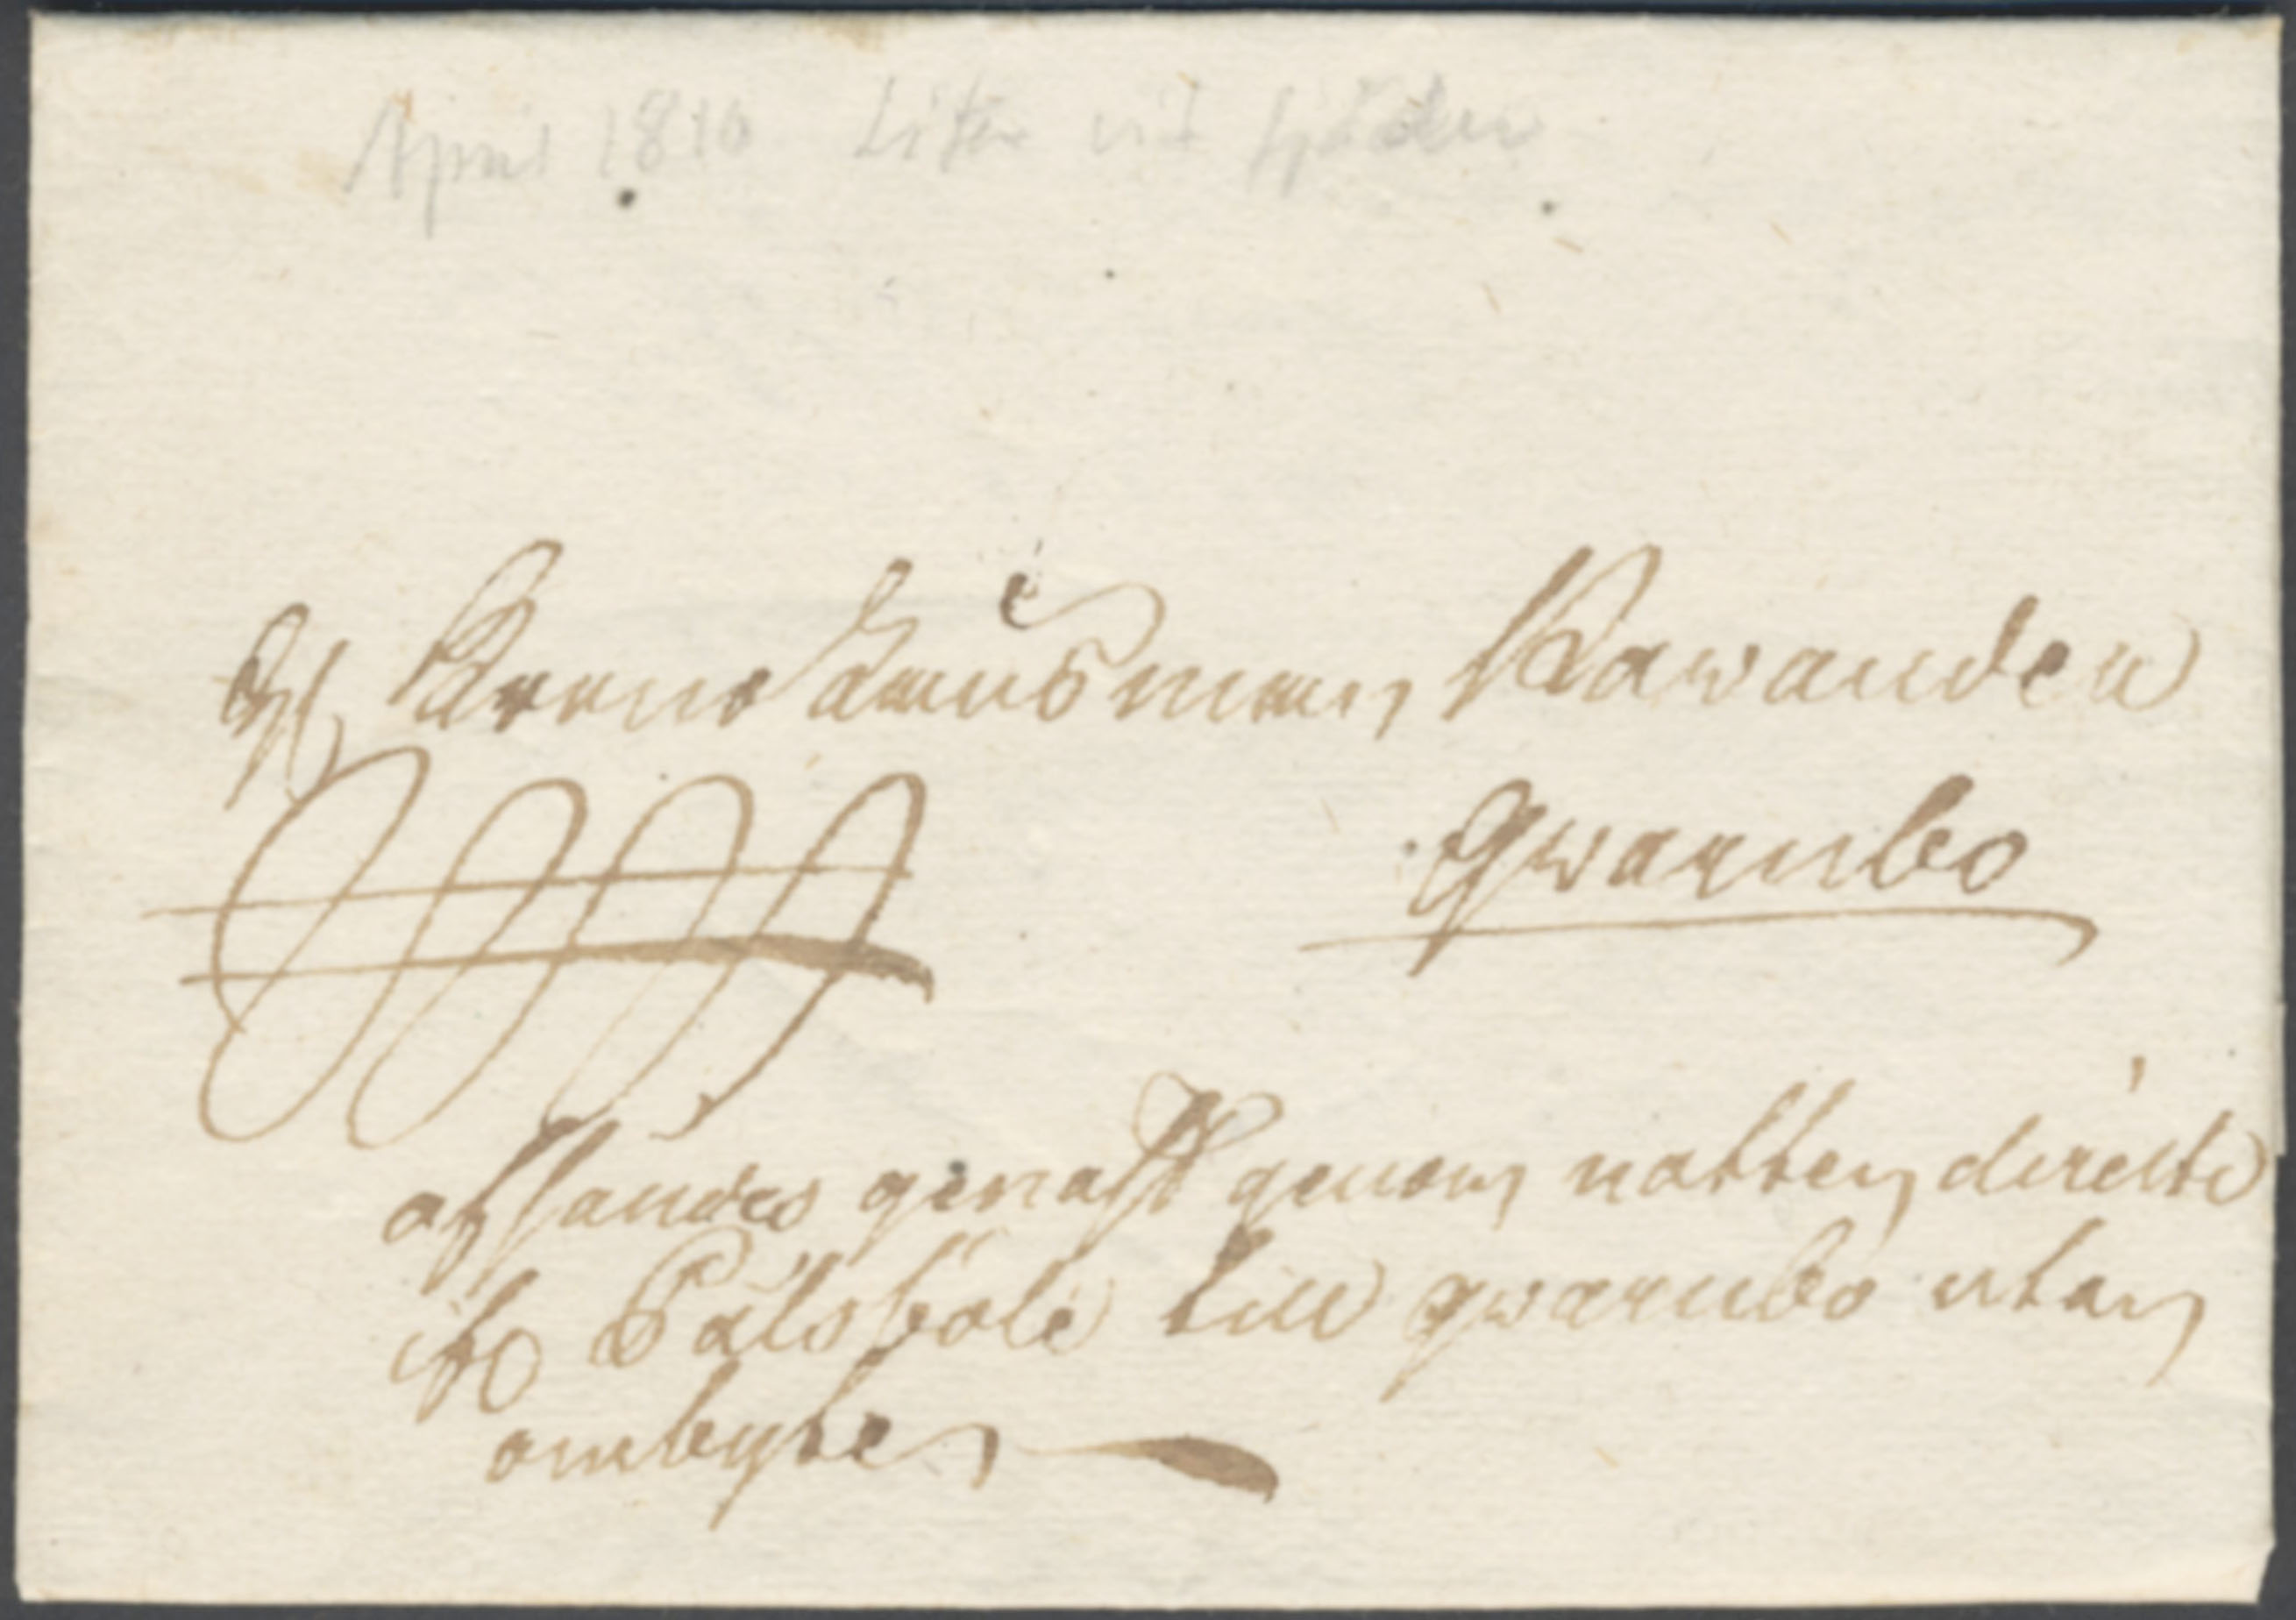 April 1810 Liker vid fjäder
Krono Länsman Kawander
Qwarnbo
afsandes genast genom natten directe
ifr Pålsböle till qwarnbo utan
ombyten